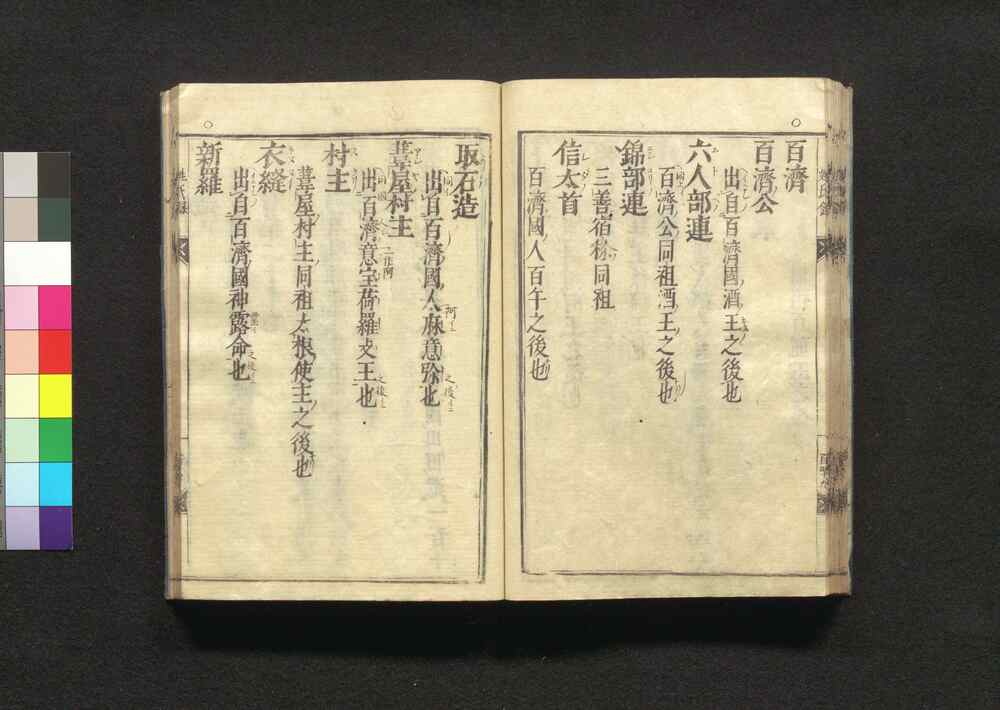 百濟
百濟公
出自百濟國酒王之後也
六人部連
百濟公同祖酒王之後也
錦部連
三善宿祢同祖
信太首
百濟國人百午之後也
取石造
出自百濟國人麻意弥也
葦屋村主
出百濟意宝荷羅支王也
村主
葦屋村主同祖太根使主之後也
衣縫
出自百濟國神露命也
新羅